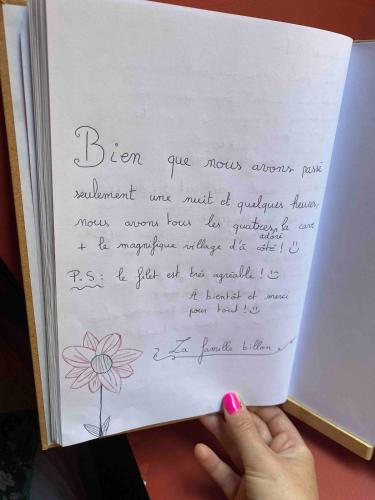 Bien que nous avons passé
seulement une nuit et quelques heures,
nous avons tous les quatres adoré la cave
+ le magnifique village d'à côté ! :)
P.S : le filet est très agréable ! :)
À bientôt et merci
pour tout ! :)
La famille billon